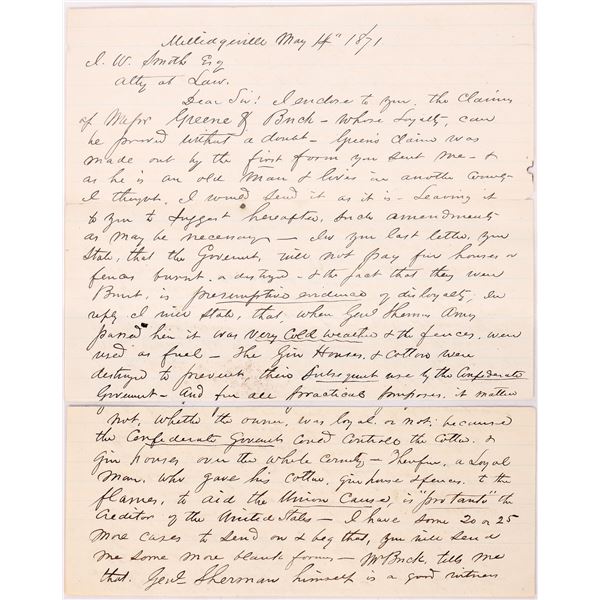 Milledgeville May 4th 1871
J. W. Smith Esq
Atty at Law.
Dear Sir: I enclose to you, the Claims
of Major Greene & Buck - whose Loyalty, can
be proved without a doubt - Green's Claim was
made out by the first form you sent me - &
as he is an old man & lives in another County
I thought, I would send it as it is - Leaving it
to you to suggest hereafter, such amendments
as may be necessary - In your last letter, you
State, that the Goverment, will not pay for houses or
fences burnt or destroyed - & the fact that they were
Burnt, is presumptive evidence of disloyalty, In
reply I will state, that when Genl Shermans Army
passed here it was very Cold weather & the fences, were
used as fuel - The Gin Houses, & cotton were
destroyed to prevent their subsequent use by the Confederate
Goverment - And for all practical purposes, it matters
not, whether the owner, was loyal or not; because
the Confederate Goverment could controll the Cotton &
Gin houses over the whole Country - Therefore, a Loyal
man, who gave his cotton, gin house & fences to the
flames, to aid the Union Cause, is "pro tanto" the
Creditor of the United States - I have some 20 or 25
more cases to send on & beg that, you will send
me some more blank forms - Mr Buck, tells me
that Genl Sherman himself is a good witness